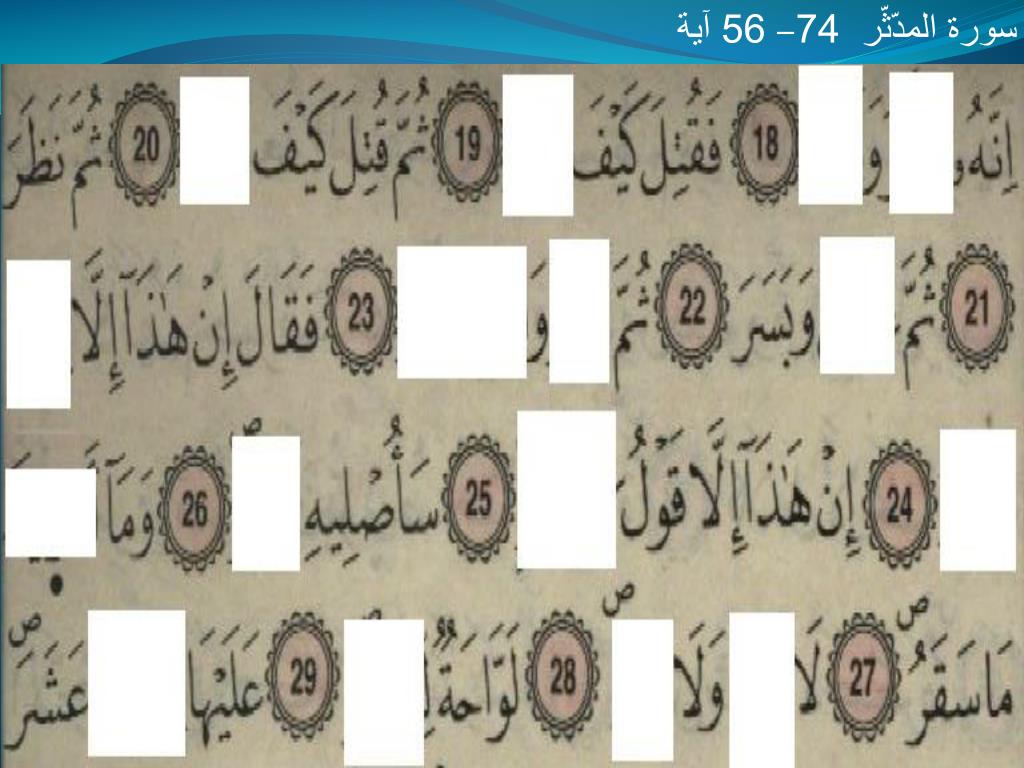 سورة المدّثّر 74– 56 آية
اِنَّهُ و وَ 18 فَقُتِلَ كَيْفَ 19 ثُمَّ قُتِلَ كَيْفَ 20 ثُمَّ نَظَرَ
21 ثُمَّ وَبَسَرَ 22 ثُمَّ وَ 23 فَقَالَ إِنْ هٰذَآ إِلَّا
24 إِنْ هٰذَآ إِلَّا قَوْلُ 25 سَأُصْلِيهِ 26 وَمَآ
مَا سَقَرُ ۖ 27 لَا وَلَا 28 لَوَّاحَةٌ 29 عَلَيْهَا عَشَرَ